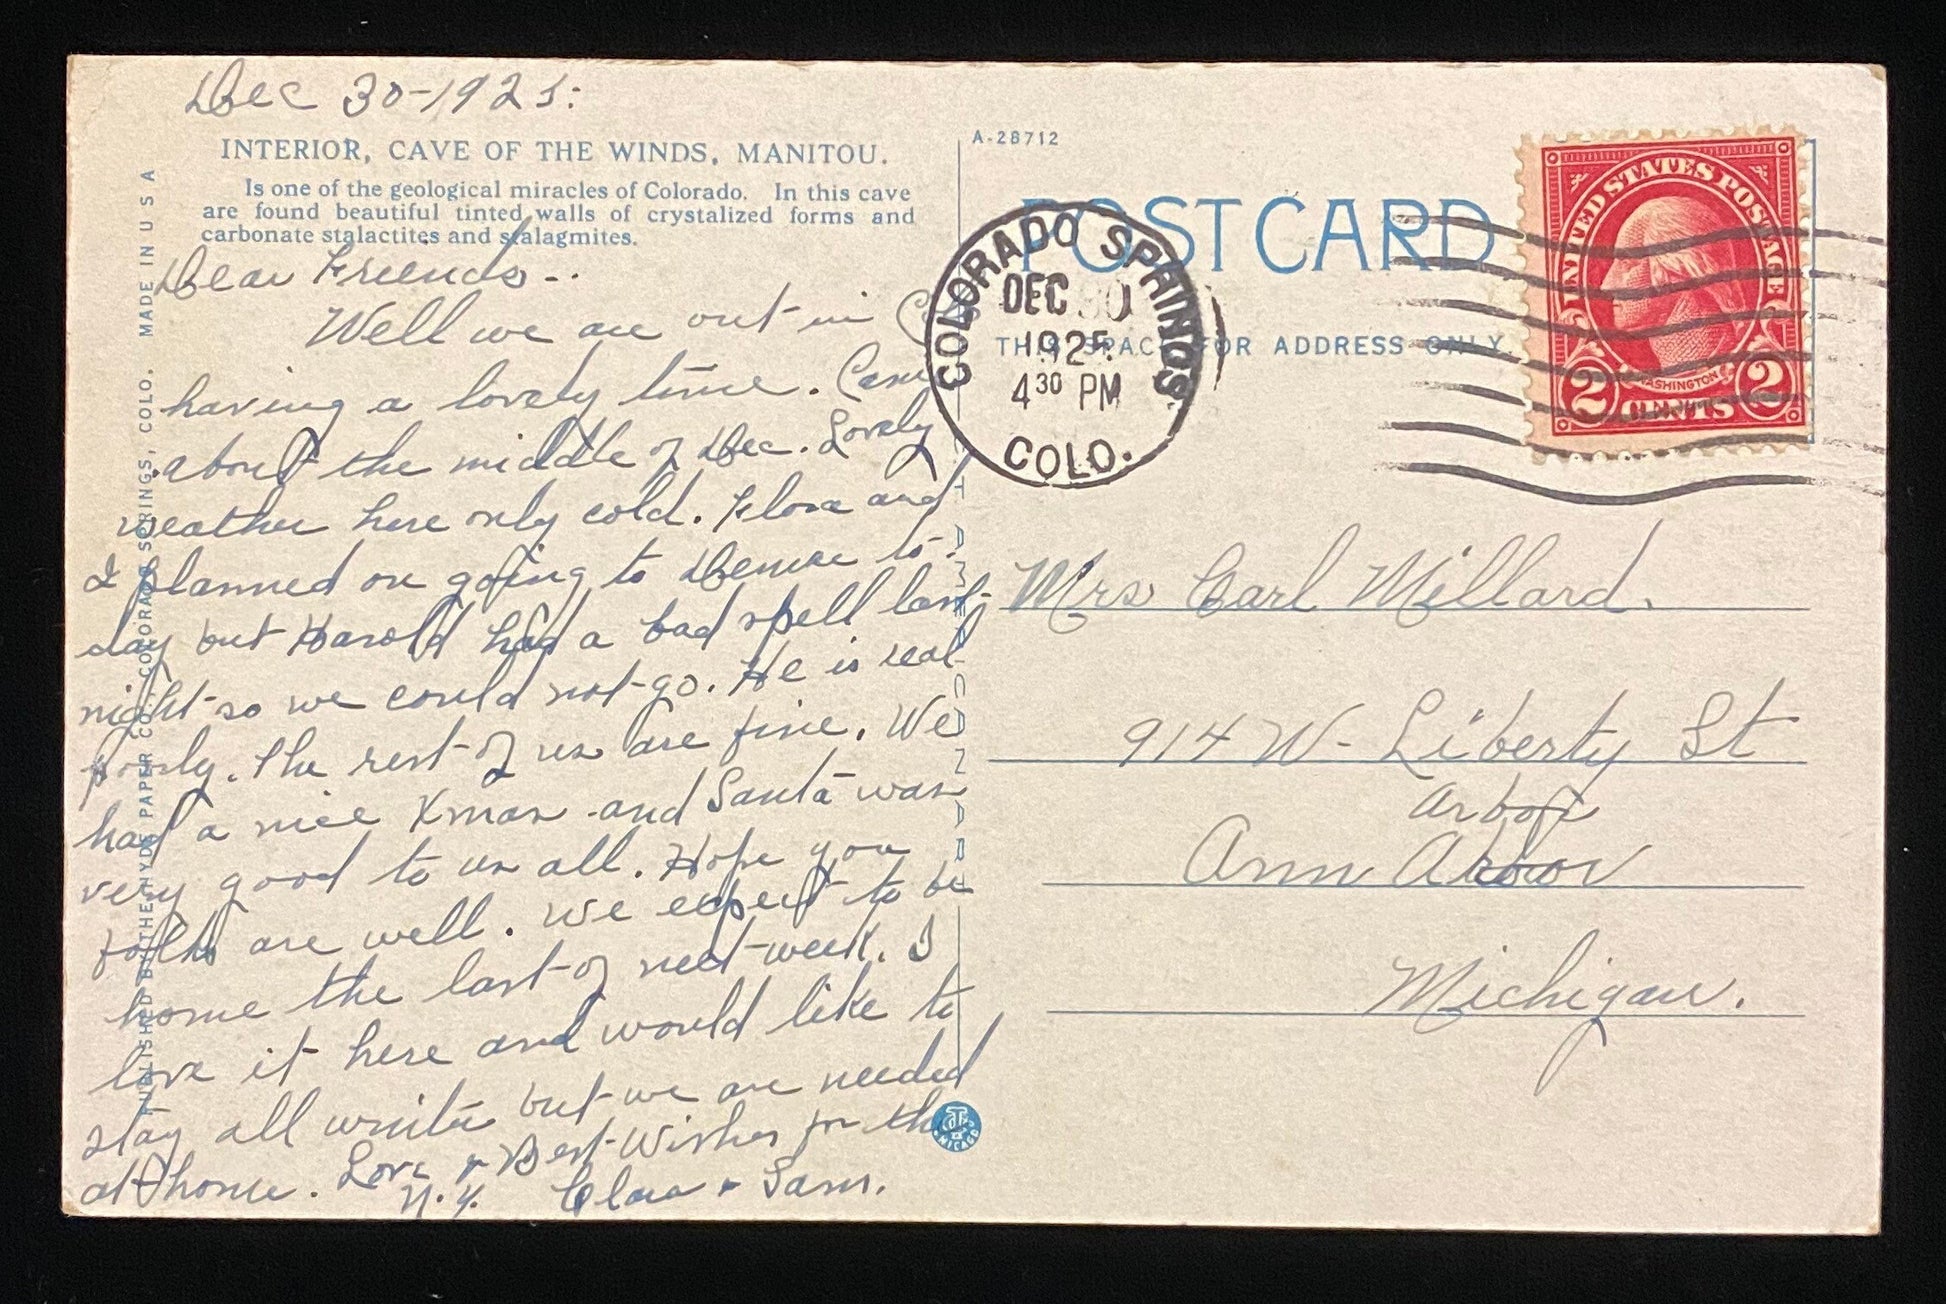 Dec 30-1925:
INTERIOR, CAVE OF THE WINDS, MANITOU.
Is one of the geological miracles of Colorado. In this cave
are found beautiful tinted walls of crystalized forms and
carbonate stalactites and stalagmites.
Dear Friends--
Well we are out in
having a lovely time. Came
about the middle of Dec. Lovely
weather here only cold. Flora and
I planned on going to Denver to-
day but Harold had a bad spell last
night so we could not go. He is real
poorly. The rest of us are fine. We
had a nice Xmas and Santa was
very good to us all. Hope you
folks are well. We expect to be
home the last of next week. I
love it here and would like to
stay all winter but we are needed
at home. Love & Best Wishes for the
N.Y. Clara & Sam.
PUBLISHED BY THE HYDE PAPER CO., COLORADO SPRINGS, COLO. MADE IN U S A
A-28712
POST CARD
THIS SPACE FOR ADDRESS ONLY.
COLORADO SPRINGS
DEC 30
1925
4 30 PM
COLO.
UNITED STATES POSTAGE
WASHINGTON
2 CENTS 2
Mrs Carl Millard.
914 W- Liberty St
Arbor
Ann Arbor
Michigan.
CHICAGO